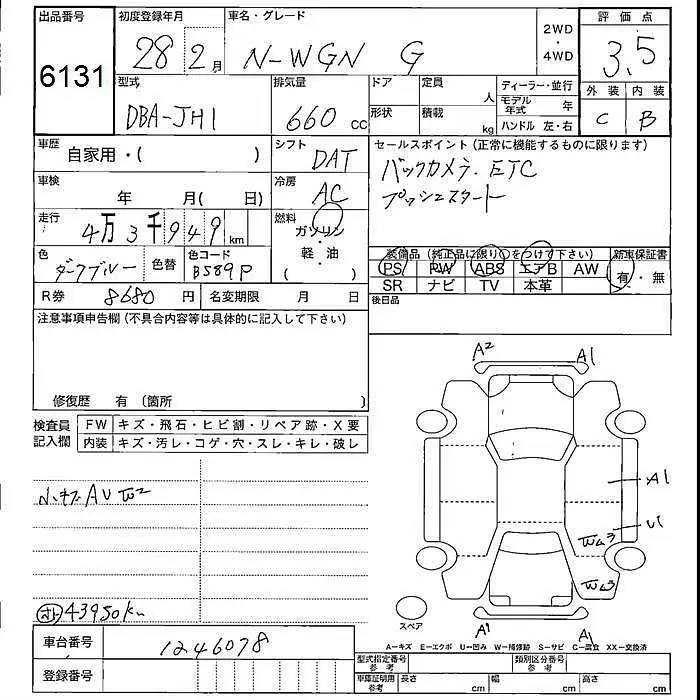 出品番号 初度登録年月 車名・グレード 評価点
6131 28 2月 N-WGN G 2WD・4WD 3.5
型式 排気量 ドア 定員 人 ディーラー・並行 外装 内装
DBA-JH1 660 CC 形状 積載 kg モデル年式 年 C B
ハンドル 左・右
車歴 自家用・( ) シフト DAT セールスポイント(正常に機能するものに限ります)
バックカメラ. ETC
プッシュスタート
車検 年 月( 日) 冷房 AC
走行 4万3千949km 燃料 ガソリン・軽・油 ( )
色 ダークブルー 色替 色コード B589P
装備品(純正品に限り○をつけて下さい) 新車保証書
PS PW ABS エアB AW 有・無
SR ナビ TV 本革
R券 8680円 名変期限 月 日 後日品
注意事項申告欄(不具合内容等は具体的に記入して下さい)
修復歴 有 (箇所 )
A2 A1
検査員記入欄 FW キズ・飛石・ヒビ割・リペア跡・X要
内装 キズ・汚レ・コゲ・穴・スレ・キレ・破レ
小キズAU W2
A1
U1
W3
W3
43950km
スペア A1 A1
車台番号 1246078
A-キズ E-エクボ U-凹み W-補修跡 S-サビ C-腐食 XX-交換済
型式指定番号 参考 類別区分番号 参考
登録番号
車庫証明用 参考 長さ cm 幅 cm 高さ cm